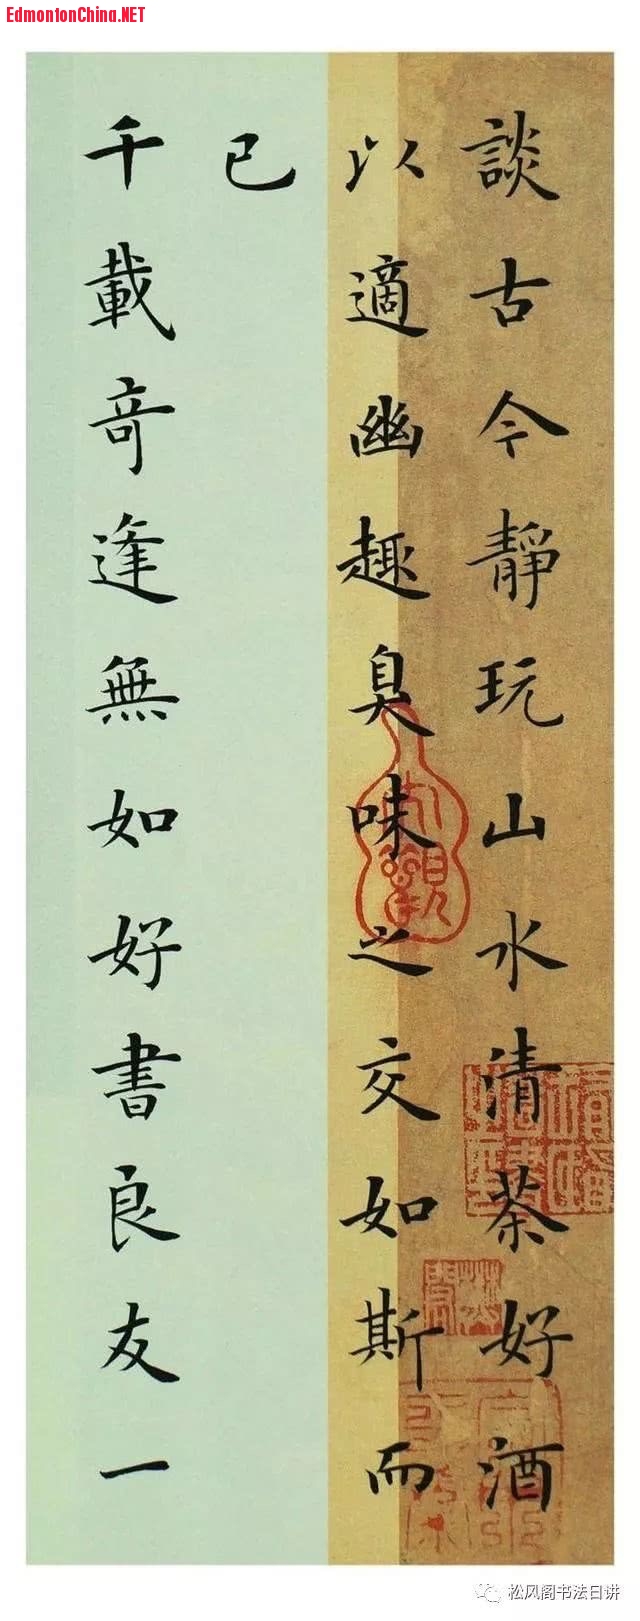 EdmontonChina.NET
談古今靜玩山水清茶好酒
以適幽趣臭味之交如斯而
已
千載奇逢無如好書良友一
松风阁书法日讲